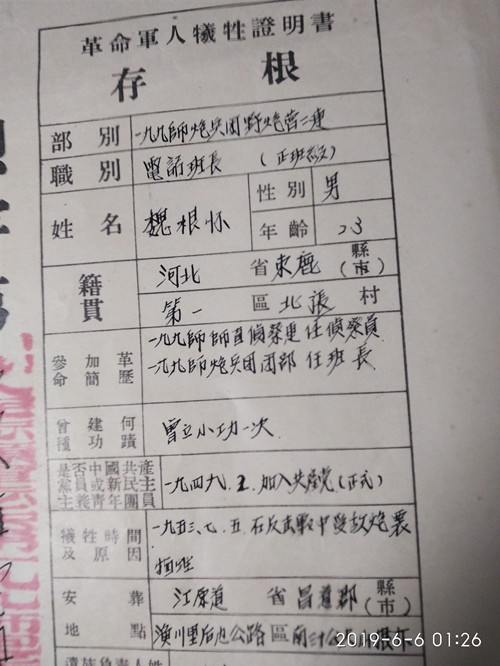 革命軍人犧牲證明書
存根
部別 一九九師炮兵团野炮营二連
職別 電話班長 (正班級)
姓名 魏根怀 性別 男
年齡 23
籍貫 河北 省 束鹿 縣(市)
第一 區 北張 村
參加革命簡歷 一九九師師直偵察連任偵察員
一九九師炮兵团团部 任班長
曾建何種功蹟 曾立小功一次
是否中國共產黨員或新民主主義青年團員 一九四九.2.加入共产党(正式)
犧牲時間及原因 一九五三.七.五.在反击战中受敌炮襲
牺牲
安葬地點 江原道 省 昌道郡 縣(市)
後也公路 區
2019-6-6 01:26